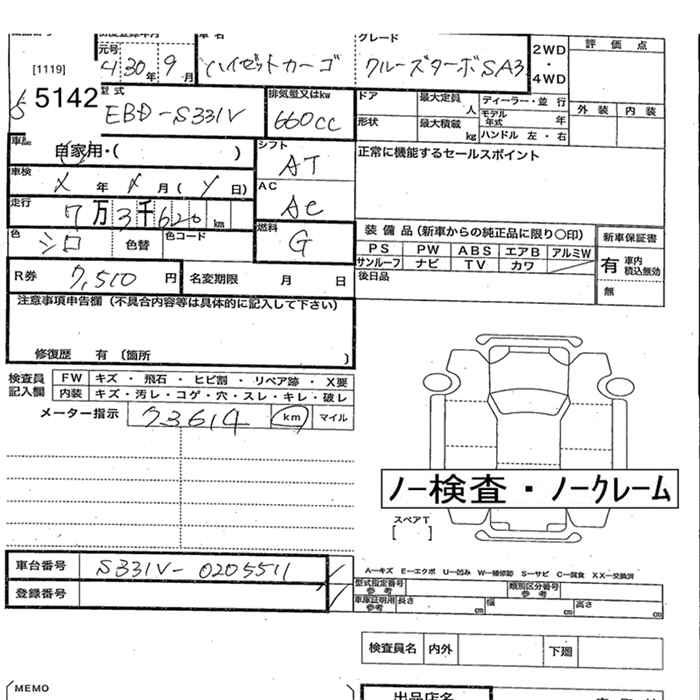 元号 車名 グレード
[1119] 30年 9月 ハイゼットカーゴ クルーズターボSA3 2WD・4WD 評価点
5142 型式 EBD-S331V 排気量又はkw 660cc
ドア 最大定員 人 ディーラー・並行 外装 内装
形状 最大積載 kg モデル年式 年
ハンドル 左・右
自家用・( ) シフト AT 正常に機能するセールスポイント
車検 年 月 ( 日)
AC AC
走行 7万3千620 km
色 シロ 色替 色コード 燃料 G
装備品(新車からの純正品に限り〇印) 新車保証書
PS PW ABS エアB アルミW
サンルーフ ナビ TV カワ
有 車内積込無効
無
R券 7,510円 名変期限 月 日 後日品
注意事項申告欄(不具合内容等は具体的に記入して下さい)
修復歴 有 〔箇所 〕
検査員記入欄 FW キズ・飛石・ヒビ割・リペア跡・X要
内装 キズ・汚レ・コゲ・穴・スレ・キレ・破レ
メーター指示 73614 km マイル
ノー検査・ノークレーム
スペアT
[ ]
車台番号 S331V-0205511
登録番号
A―キズ E―エクボ U―凹み W―補修跡 S―サビ C―腐食 XX―交換済
型式指定番号 参考 類別区分番号 参考
車庫証明用 参考 長さ cm 幅 cm 高さ cm
検査員名 内外 下廻
MEMO
出品店名